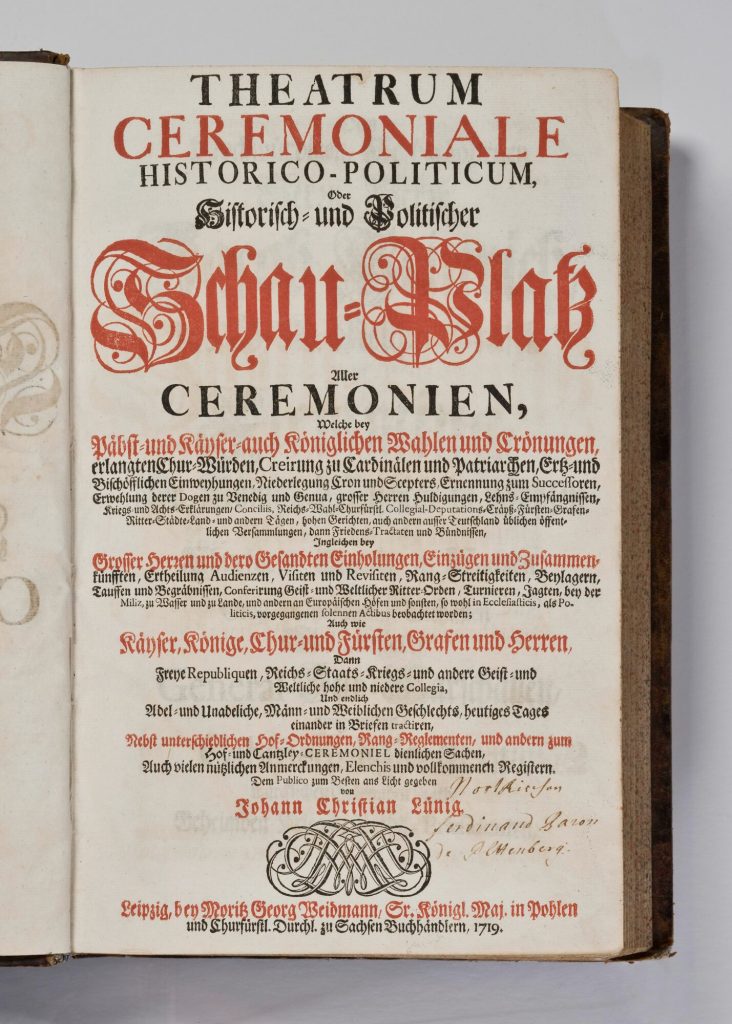 THEATRUM
CEREMONIALE
HISTORICO-POLITICUM,
Oder
Historisch- und Politischer
Schau-Platz
Aller
CEREMONIEN,
Welche bey
Päbst- und Käyser- auch Königlichen Wahlen und Crönungen,
erlangten Chur-Würden, Creirung zu Cardinälen und Patriarchen, Ertz- und
Bischöfflichen Einweyhungen, Niederlegung Cron und Scepters, Ernennung zum Successoren,
Erwehlung derer Dogen zu Venedig und Genua, grosser Herren Huldigungen, Lehns-Empfängnissen,
Kriegs- und Achts-Erklärungen, Conciliis, Reichs-Wahl-Churfürstl. Collegial-Deputations-Cräyß-Fürsten-Grafen-
Ritter-Städte-Land- und andern Tägen, hohen Gerichten, auch andern ausser Teutschland üblichen öffent-
lichen Versammlungen, dann Friedens-Tractaten und Bündnissen,
Ingleichen bey
Grosser Herren und dero Gesandten Einholungen, Einzügen und Zusammen-
künfften, Ertheilung Audienzen, Visiten und Revisiten, Rang-Streitigkeiten, Beylagern,
Tauffen und Begräbnissen, Conferirung Geist- und Weltlicher Ritter-Orden, Turnieren, Jagten, bey der
Miliz, zu Wasser und zu Lande, und andern an Europäischen Höfen und sonsten, so wohl in Ecclesiasticis, als Po-
liticis, vorgegangenen solennen Actibus beobachtet worden;
Auch wie
Käyser, Könige, Chur- und Fürsten, Grafen und Herren,
Dann
Freye Republiquen, Reichs-Staats-Kriegs- und andere Geist- und
Weltliche hohe und niedere Collegia,
Und endlich
Adel- und Unadeliche, Männ- und Weiblichen Geschlechts, heutiges Tages
einander in Briefen tractiren,
Nebst unterschiedlichen Hof-Ordnungen, Rang-Reglementen, und andern zum
Hof- und Cantzley-CEREMONIEL dienlichen Sachen,
Auch vielen nützlichen Anmerckungen, Elenchis und vollkommenen Registern.
Dem Publico zum Besten ans Licht gegeben
von
Johann Christian Lünig.
Ferdinand Baron
de
Leipzig, bey Moritz Georg Weidmann, Sr. Königl. Maj. in Pohlen
und Churfürstl. Durchl. zu Sachsen Buchhändlern, 1719.